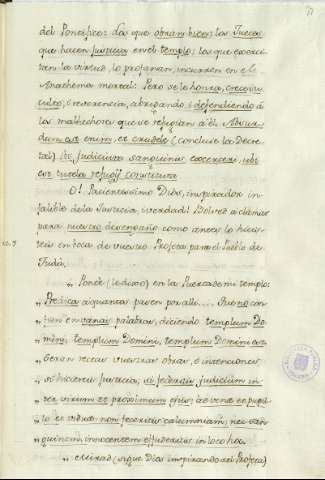 del Pontifice: Los que obran bien; los Jueces
que hacen Justicia en el templo; los que exerci-
tan la virtud, lo profanan, incurren en el
Anathema mortal: Pero se le honra,
i reverencia, abrigando, i defendiendo á
los malhechores que se refugian a él. Absur-
dum est enim, et crudele (concluye la Decre-
tal) ibi judicium sanguinis exerceri, ubi
est tutela refugij constituta
O! Pacientissimo Dios, inspirador in-
falible de la Justicia, i verdad! Bolved a clamar
para nuestro desengaño como antes lo hicis-
teis en boca de vuestro Profeta para el Pueblo de
Judà.
„ Ponte (le dixo) en la Puerta de mi templo:
„ Predica a quantos pasen por alli...
„ en vanas palabras, diciendo templum Do-
„ mini, templum Domini, templum Domini est
„ vuestras obras, è intenciones
„ si hiciereis Justicia, si feceritis judicium in-
„ ter virum et proximum ejus; advenæ et pupil-
„ lo et viduæ non feceritis calumniam; nec san-
„ guinem innocentem effuderitis in loco hoc.
„ (sigue Dios inspirando al Profeta)